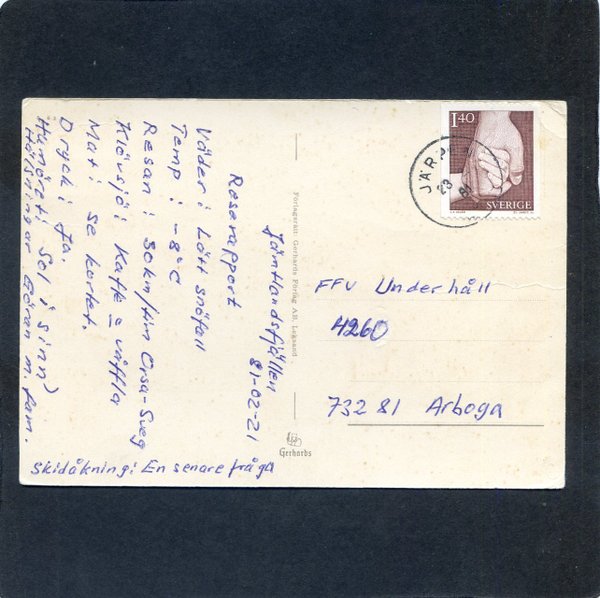 Jämtlandsfjällen
81-02-21
Reserapport
Väder: Lätt snöfall
Temp: -8°C
Resan: 30km/tim Orsa-Sveg
Klövsjö: Kaffe o våffla
Mat: se kortet.
Dryck: Ja.
Humöret: Sol i sinn)
Hälsningar Göran m. fam.
Skidåkning: En senare fråga
Förlagsrätt: Gerhards Förlag AB, Leksand
Gerhards
1.40
SVERIGE
JÄRP
23
81
FFV Underhåll
4260
732 81 Arboga